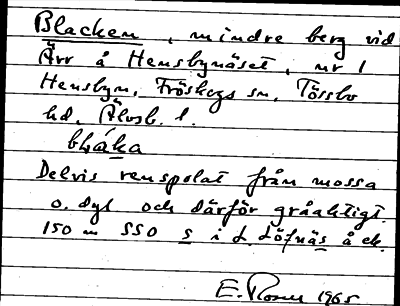 Blacken, mindre berg vid
Ärr å Hensbynäset, nr 1
Hensbyn, Fröskogs sn, Tössbo
hd. Älvsb. l.
Delvis renspolat från mossa
o. dyl och därför gråaktigt.
150 m SSO s i d. Löfnäs å ek.
E. Rosen 1965